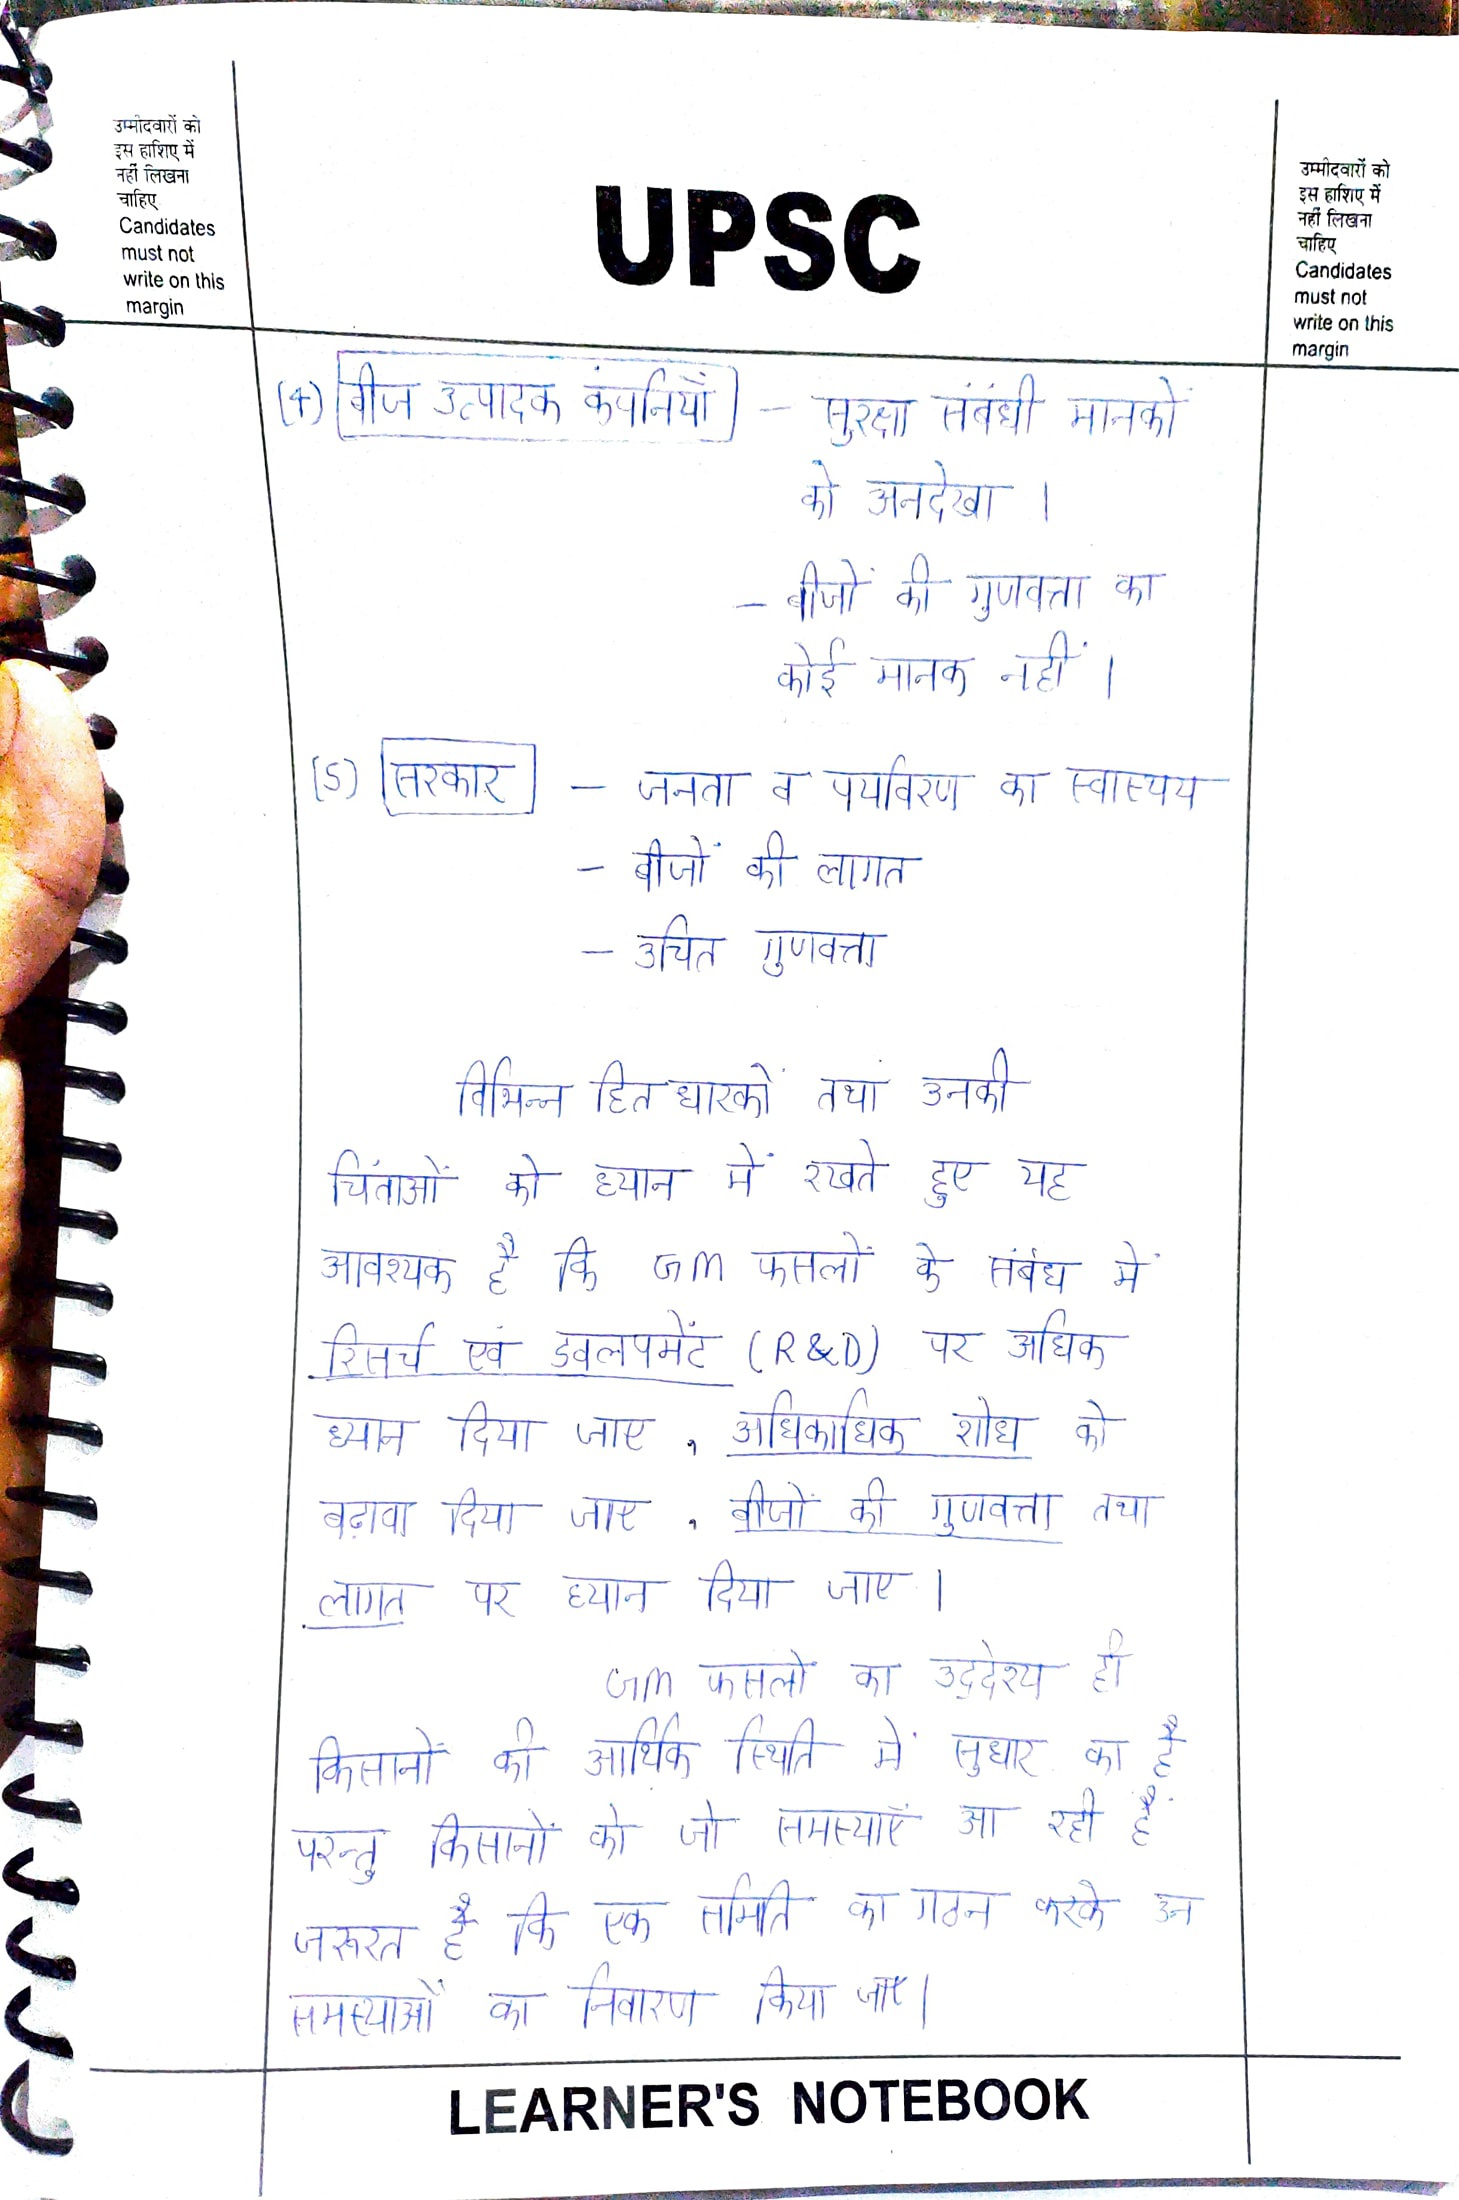 उम्मीदवारों को
इस हाशिए में
नहीं लिखना
चाहिए
Candidates
must not
write on this
margin
UPSC
उम्मीदवारों को
इस हाशिए में
नहीं लिखना
चाहिए
Candidates
must not
write on this
margin
(4) बीज उत्पादक कंपनियाँ - सुरक्षा संबंधी मानकों
को अनदेखा ।
- बीजों की गुणवत्ता का
कोई मानक नहीं ।
(5) सरकार - जनता व पर्यावरण का स्वास्थ्य
- बीजों की लागत
- उचित गुणवत्ता
विभिन्न हितधारकों तथा उनकी
चिंताओं को ध्यान में रखते हुए यह
आवश्यक है कि GM फसलों के संबंध में
रिसर्च एवं डवलपमेंट (R&D) पर अधिक
ध्यान दिया जाए , अधिकाधिक शोध को
बढ़ावा दिया जाए , बीजों की गुणवत्ता तथा
लागत पर ध्यान दिया जाए ।
GM फसलों का उद्देश्य ही
किसानों की आर्थिक स्थिति में सुधार का है
परन्तु किसानों को जो समस्याएँ आ रही हैं
जरूरत है कि एक समिति का गठन करके उन
समस्याओं का निवारण किया जाए ।
LEARNER'S NOTEBOOK